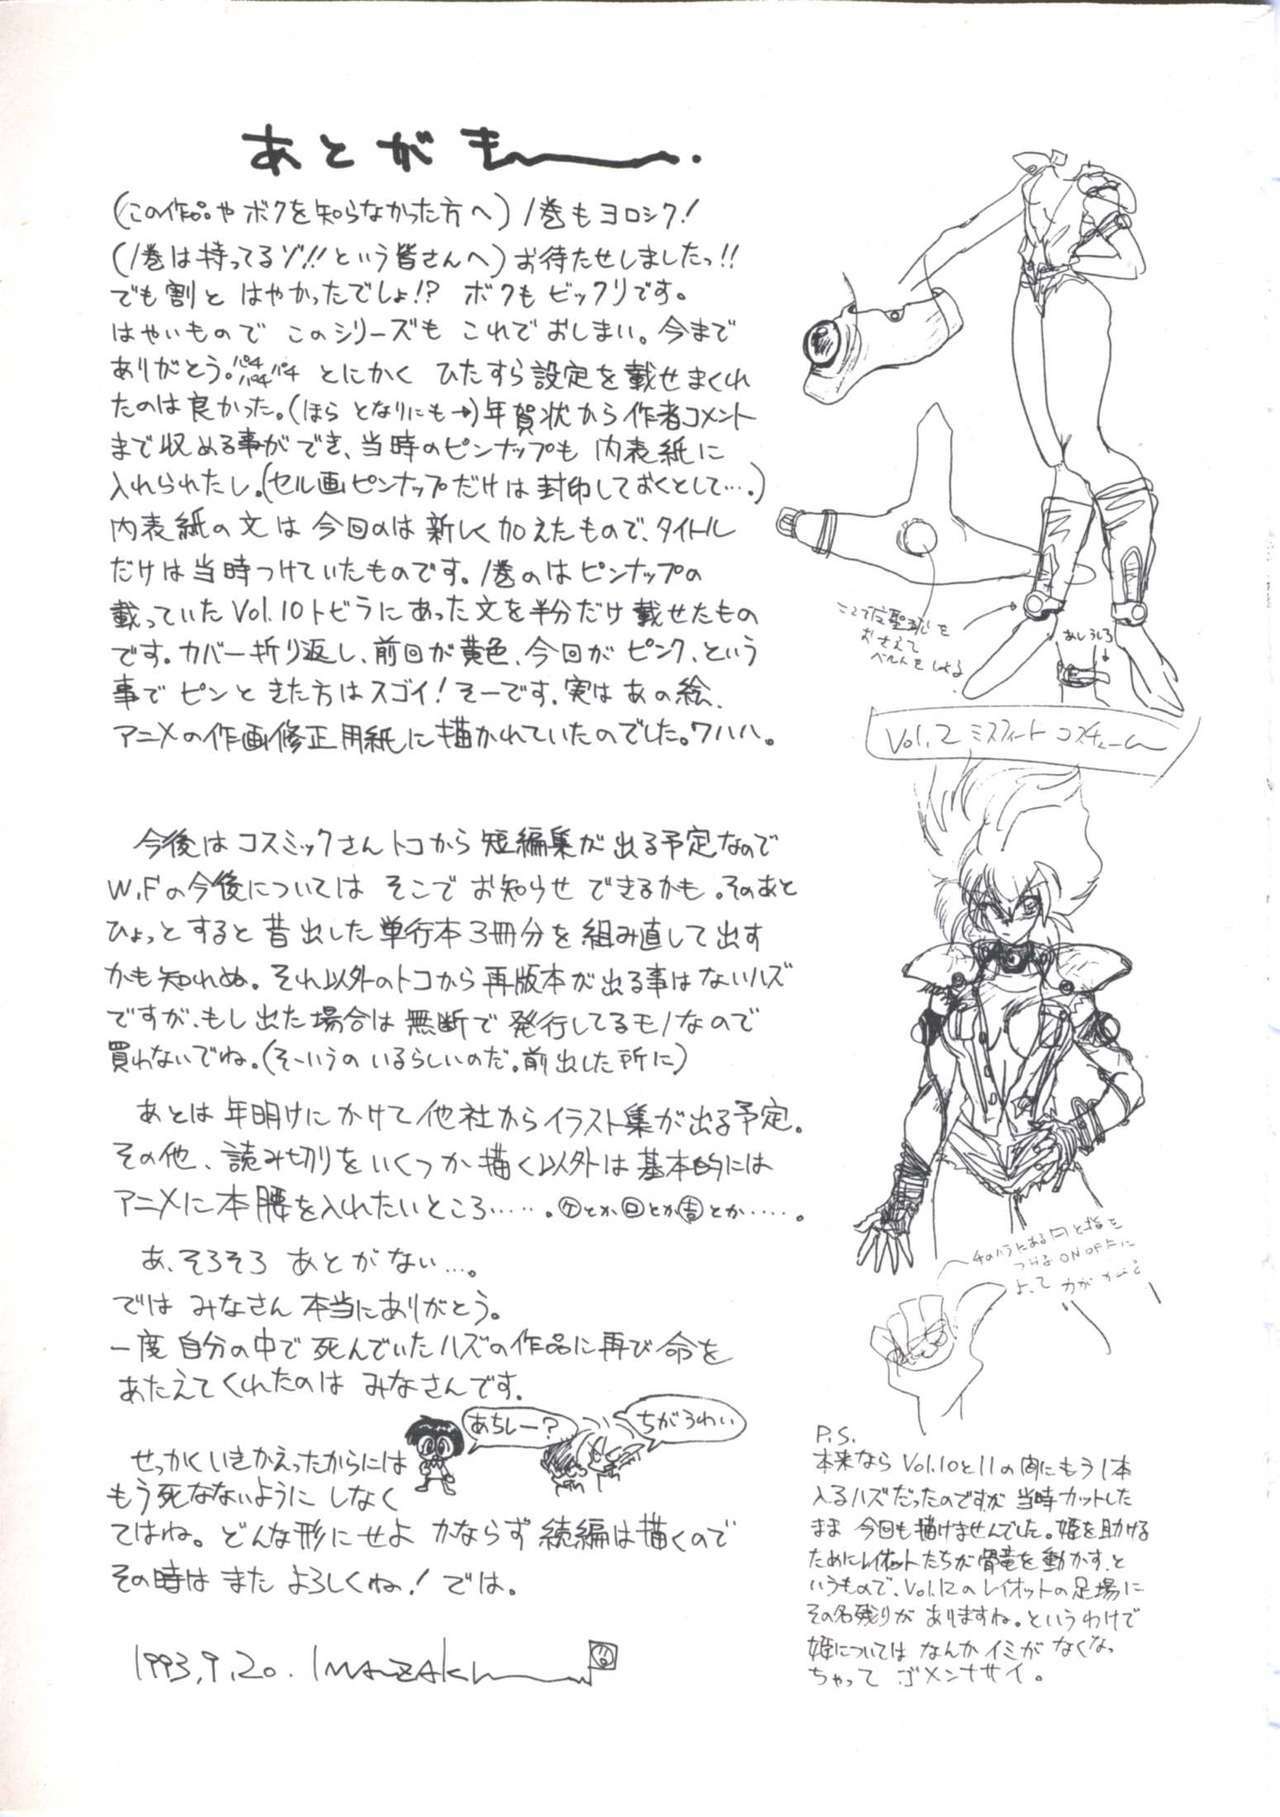 あとがきーー.
(この作品やボクを知らなかった方へ)1巻もヨロシク!
(1巻は持ってるゾ!!という皆さんへ)お待たせしましたっ!!
でも割と はやかったでしょ!? ボクも ビックリです。
はやいもので このシリーズも これで おしまい。今まで
ありがとう。パチパチパチ とにかく ひたすら設定を載せまくれ
たのは良かった。(ほら となりにも→)年賀状から作者コメント
まで収める事ができ、当時のピンナップも 内表紙に
入れられたし。(セル画ピンナップだけは封印しておくとして…。)
内表紙の文は 今回のは新しく加えたもので、タイトル
だけは当時つけていたものです。1巻のはピンナップの
載っていたVol.10トビラにあった文を半分だけ載せたもの
です。カバー折り返し、前回が黄色、今回がピンク、という
事で ピンときた方はスゴイ!そーです。実は あの絵、
アニメの作画修正用紙に描かれていたのでした。ワハハ。
今後は コスミックさんトコから 短編集が出る予定なので
W.Fの今後については そこで お知らせ できるかも。そのあと
ひょっとすると昔出した単行本3冊分を組み直して出す
かも知れぬ。それ以外のトコから再版本が出る事はないハズ
ですが、もし出た場合は無断で発行してるモノなので
買わないでね。(そーいうの いるらしいのだ。前出した所に)
あとは 年明けにかけて他社からイラスト集が出る予定。
その他、読み切りをいくつか描く以外は基本的には
アニメに本腰を入れたいところ……。ケとか回とか吉とか……。
あ、そろそろ あとがない…。
では みなさん本当にありがとう。
一度自分の中で死んでいたハズの作品に再び命を
あたえてくれたのは みなさんです。
あちしー?
ちがうわい
せっかくいきかえったからには
もう死なないように しなく
てはね。どんな形にせよ かならず続編は描くので
その時は また よろしくね! では。
1993.9.20. IMAZAKI
おさえて
ベルトをしめる
あしうしろ
Vol.2 ミスフィート コスチューム
P.S.
本来なら Vol.10と11の間にもう1本
入るハズだったのですが 当時カットした
まま 今回も描けませんでした。姫を助ける
ためにレイオットたちが骨竜を動かす、と
いうもので、Vol.12のレイオットの足場に
その名残りが ありますね。というわけで
姫については なんかイミが なくなっ
ちゃって ゴメンナサイ。